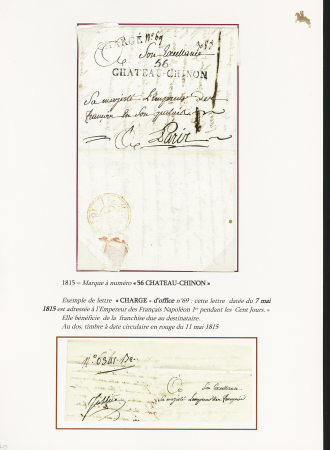 CHARGÉ N° 69
Son Excellence
56
CHATEAU-CHINON
Sa majesté L'empereur des
francais en Son palais
a Paris
1815 – Marque à numéro «56 CHATEAU-CHINON »
Exemple de lettre « CHARGE » d'office n°69 : cette lettre datée du 7 mai
1815 est adressée à l'Empereur des Français Napoléon Iᵉʳ pendant les Cent Jours. »
Elle bénéficie de la franchise due au destinataire.
Au dos, timbre à date circulaire en rouge du 11 mai 1815
a Son Excellence
Sa majesté L'empereur des francais